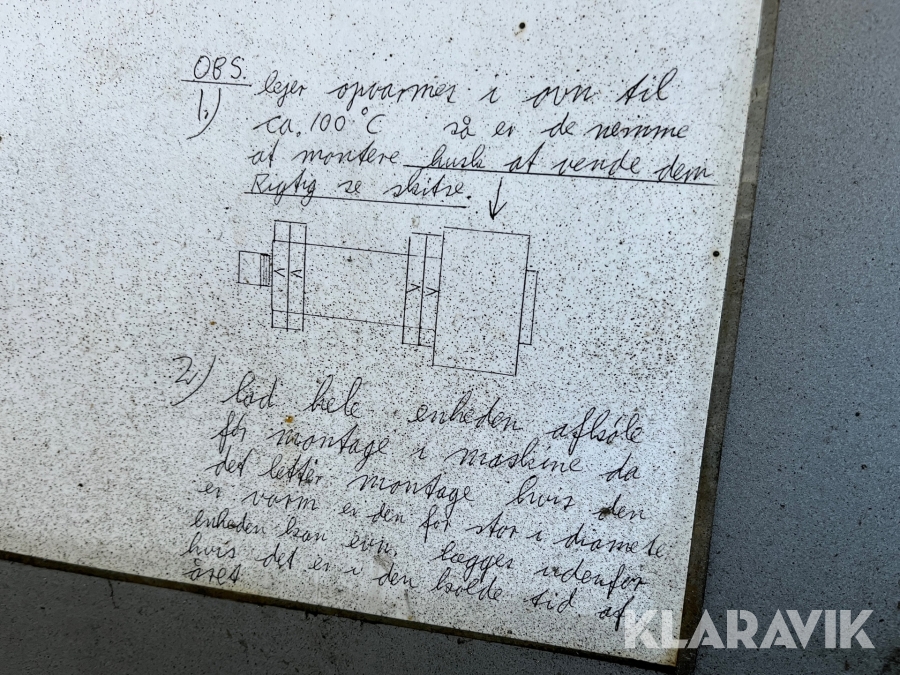 OBS.
1,) lejer opvarmes i ovn til
ca. 100°C så er de nemme
at montere husk at vende dem
Rigtig se skitse.
< < > >
2,) lad hele enheden afkøle
før montage i maskine da
det letter montage hvis den
er varm er den for stor i diamete
enheden kan evn. lægges udenfor
hvis det er i den kolde tid af
året
KLARAVIK